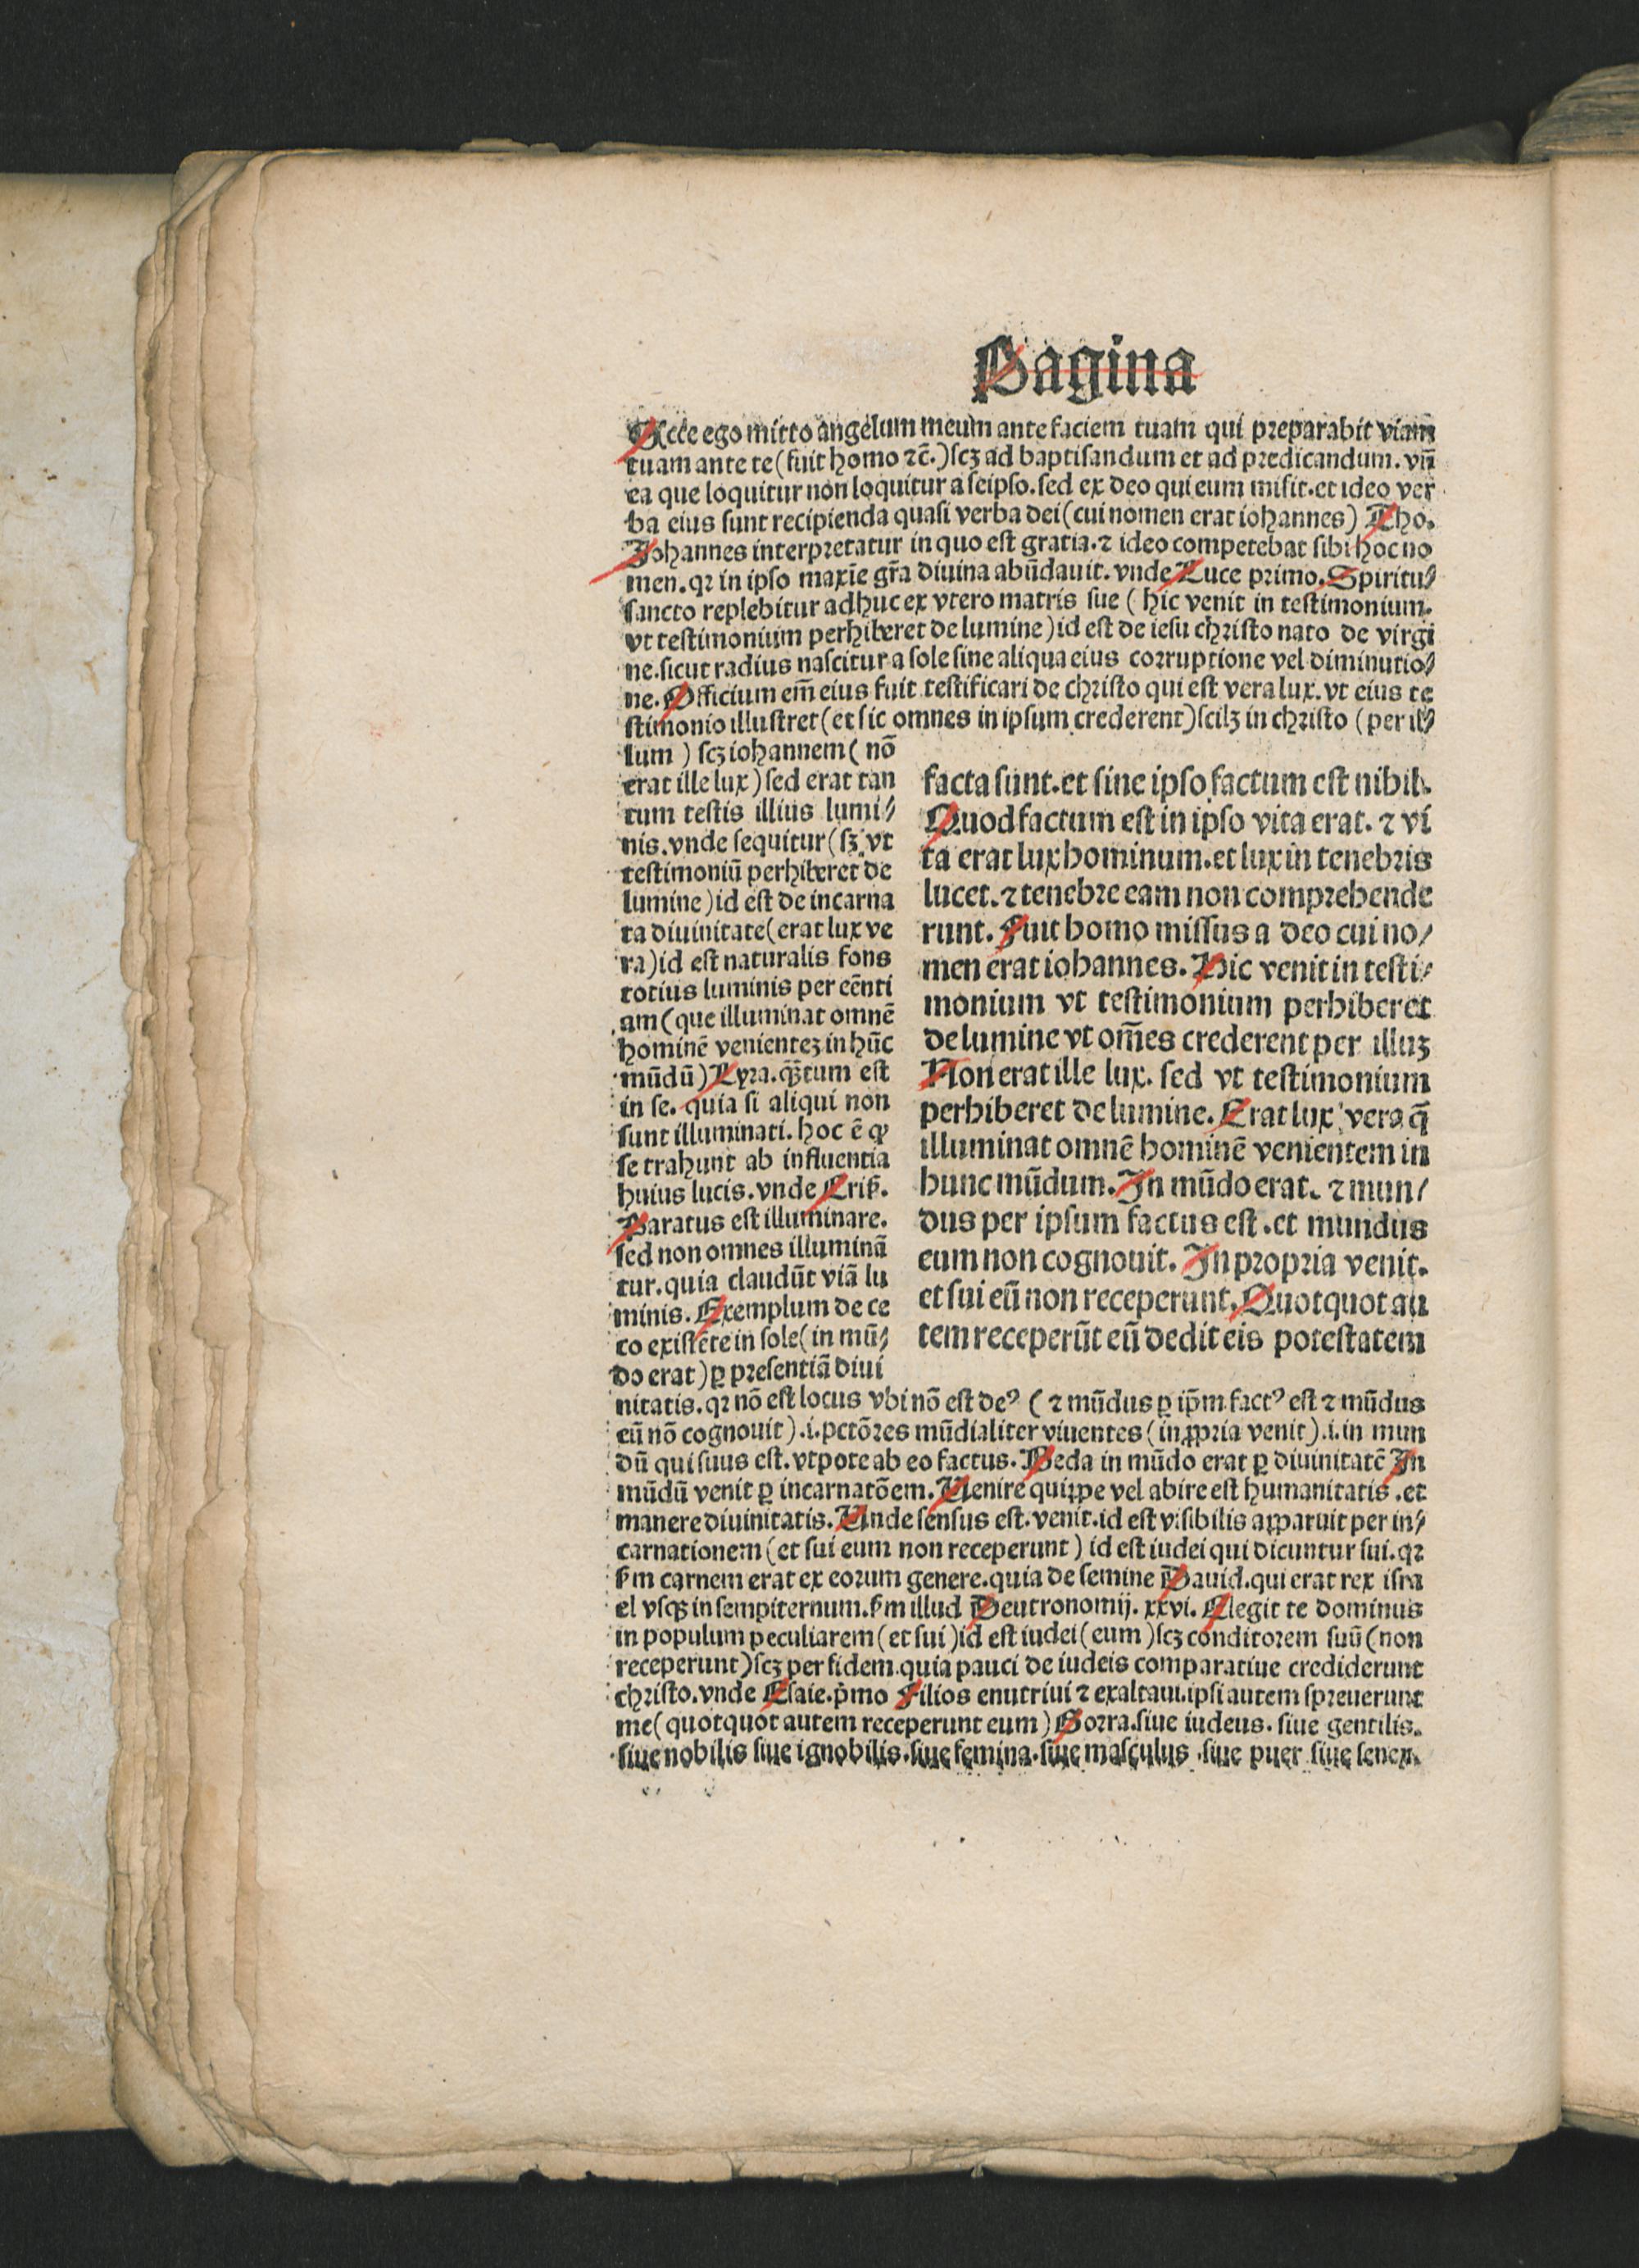 Pagina
Ecce ego mitto angelum meum ante faciem tuam qui preparabit viam̄
tuam ante te (fuit homo ⁊c̄.) scꝫ ad baptisandum et ad predicandum. vñ
ea que loquitur non loquitur a seipso. sed ex deo qui eum misit. et ideo ver
ba eius sunt recipienda quasi verba dei (cui nomen erat iohannes) Tho.
Johannes interpretatur in quo est gratia. ⁊ ideo competebat sibi hoc no
men. qꝛ in ipso maxīe gr̄a diuina abūdauit. vnde Luce primo. Spiritu⸗
sancto replebitur adhuc ex vtero matris sue (hic venit in testimonium.
vt testimonium perhiberet de lumine) id est de iesu christo nato de virgi
ne. sicut radius nascitur a sole sine aliqua eius corruptione vel diminutio⸗
ne. Officium em̄ eius fuit testificari de christo qui est vera lux. vt eius te
stimonio illustret (et sic omnes in ipsum crederent) scilꝫ in christo (per il⸗
lum) scꝫ iohannem (nō
erat ille lux) sed erat tan
tum testis illius lumi⸗
nis. vnde sequitur (sꝫ vt
testimoniū perhiberet de
lumine) id est de incarna
ta diuinitate (erat lux ve
ra) id est naturalis fons
totius luminis per eēnti
am (que illuminat omnē
hominē venienteꝫ in hūc
mūdū) Lyra. qꝫ̄tum est
in se. quia si aliqui non
sunt illuminati. hoc ē ꝙ
se trahunt ab influentia
huius lucis. vnde Criß.
Paratus est illuminare.
sed non omnes illuminā
tur. quia claudūt viā lu
minis. Exemplum de ce
co existēte in sole (in mū⸗
do erat) ꝑ presentiā diui
facta sunt. et sine ipso factum est nihil.
Quod factum est in ipso vita erat. ⁊ vi
ta erat lux hominum. et lux in tenebris
lucet. ⁊ tenebre eam non comprehende
runt. Fuit homo missus a deo cui no⸗
men erat iohannes. Hic venit in testi⸗
monium vt testimonium perhiberet
de lumine vt om̄es crederent per illuꝫ
Non erat ille lux. sed vt testimonium
perhiberet de lumine. Erat lux vera q̄
illuminat omnē hominē venientem in
hunc mūdum. Jn mūdo erat. ⁊ mun⸗
dus per ipsum factus est. et mundus
eum non cognouit. Jn propria venit.
et sui eū non receperunt. Quotquot au
tem receperūt eū dedit eis potestatem
nitatis. qꝛ nō est locus vbi nō est deꝰ (⁊ mūdus ꝑ ip̄m factꝰ est ⁊ mūdus
eū nō cognouit) .i. pctōres mūdialiter viuentes (in ꝓpria venit) .i. in mun
dū qui suus est. vtpote ab eo factus. Beda in mūdo erat ꝑ diuinitatē Jn
mūdū venit ꝑ incarnatōem. Uenire quippe vel abire est humanitatis. et
manere diuinitatis. Unde sensus est. venit. id est visibilis apparuit per in⸗
carnationem (et sui eum non receperunt) id est iudei qui dicuntur sui. qꝛ
ẜm carnem erat ex eorum genere. quia de semine Dauid. qui erat rex isra
el vsqꝫ in sempiternum. ẜm illud Deutronomij. xxvi. Elegit te dominus
in populum peculiarem (et sui) id est iudei (eum) scꝫ conditorem suū (non
receperunt) scꝫ per fidem. quia pauci de iudeis comparatiue crediderunt
christo. vnde Esaie. p̄mo Filios enutriui ⁊ exaltaui. ipsi autem spreuerunt
me (quotquot autem receperunt eum) Gorra. siue iudeus. siue gentilis.
siue nobilis siue ignobilis. siue femina. siue masculus. siue puer siue senex.